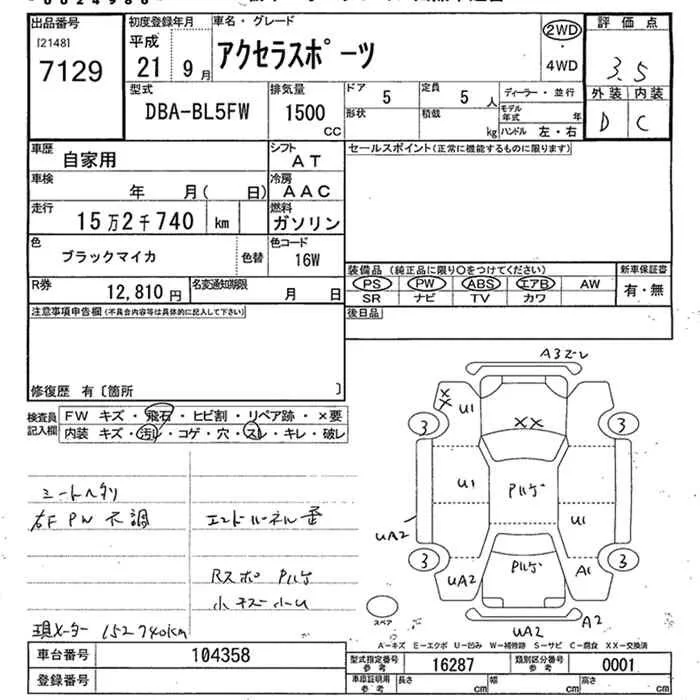 出品番号 初度登録年月 車名・グレード 2WD 評価点
[2148] 平成 アクセラスポーツ ・
7129 21 9月 4WD 3.5
型式 排気量 ドア 5 定員 5人 ディーラー・並行 外装 内装
DBA-BL5FW 1500 CC 形状 積載 kg モデル年式 年 D C
ハンドル 左・右
車歴 自家用 シフト AT セールスポイント(正常に機能するものに限ります)
車検 年 月( 日) 冷房 AAC
走行 15万2千740 km 燃料 ガソリン
色 ブラックマイカ 色替 色コード 16W
装備品(純正品に限り○をつけてください) 新車保証書
PS PW ABS エアB AW 有・無
SR ナビ TV カワ
R券 12,810円 名変通知期限 月 日
注意事項申告欄(不具合内容等は具体的に記入して下さい) 後日品
修復歴 有〔箇所 〕
検査員記入欄 FW キズ・飛石・ヒビ割・リペア跡・×要
内装 キズ・汚レ・コゲ・穴・スレ・キレ・破レ
シートヘタリ
右F PW 不調
エンドパーネル歪
Rスポ Pハゲ
小キズ小U
現メーター 152740km
A3
XX
U1
XX
3
3
U1
Pハゲ
U1
UA2
3
Pハゲ
3
UA2
A1
スペア
UA2
A2
A-キズ E-エクボ U-凹み W-補修跡 S-サビ C-腐食 XX-交換済
車台番号 104358 型式指定番号 参考 16287 類別区分番号 参考 0001
登録番号 車庫証明用 参考 長さ cm 幅 cm 高さ cm